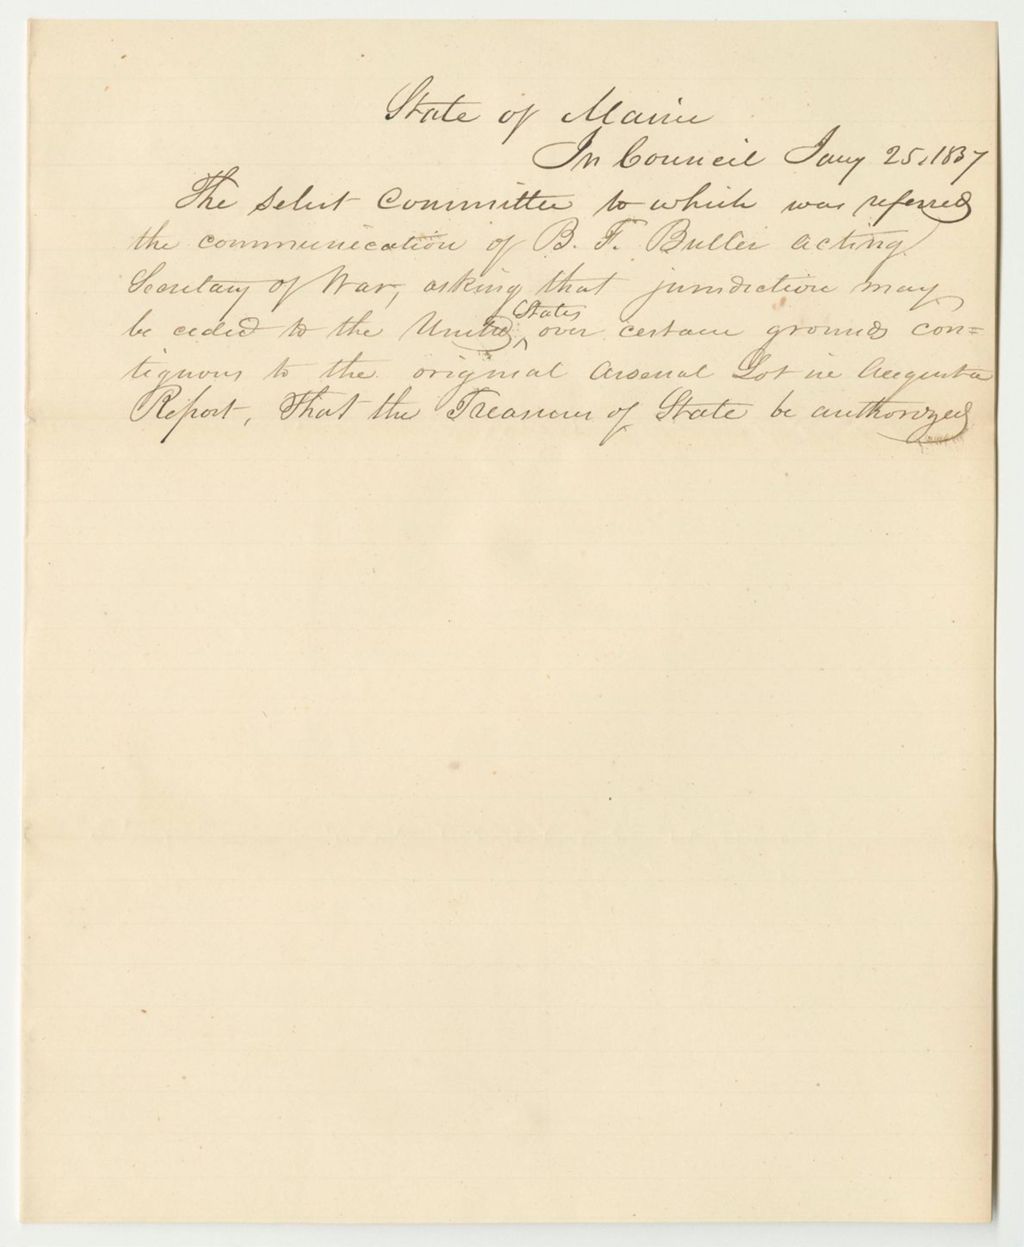 State of Maine
In Council Jany 25, 1837
The select Committee to which was referred
the communication of B. F. Butler acting
Secretary of War, asking that jurisdiction may
be ceded to the United States over certain grounds con=
tiguous to the original Arsenal Lot in Augusta
Report, That the Treasurer of State be authorized